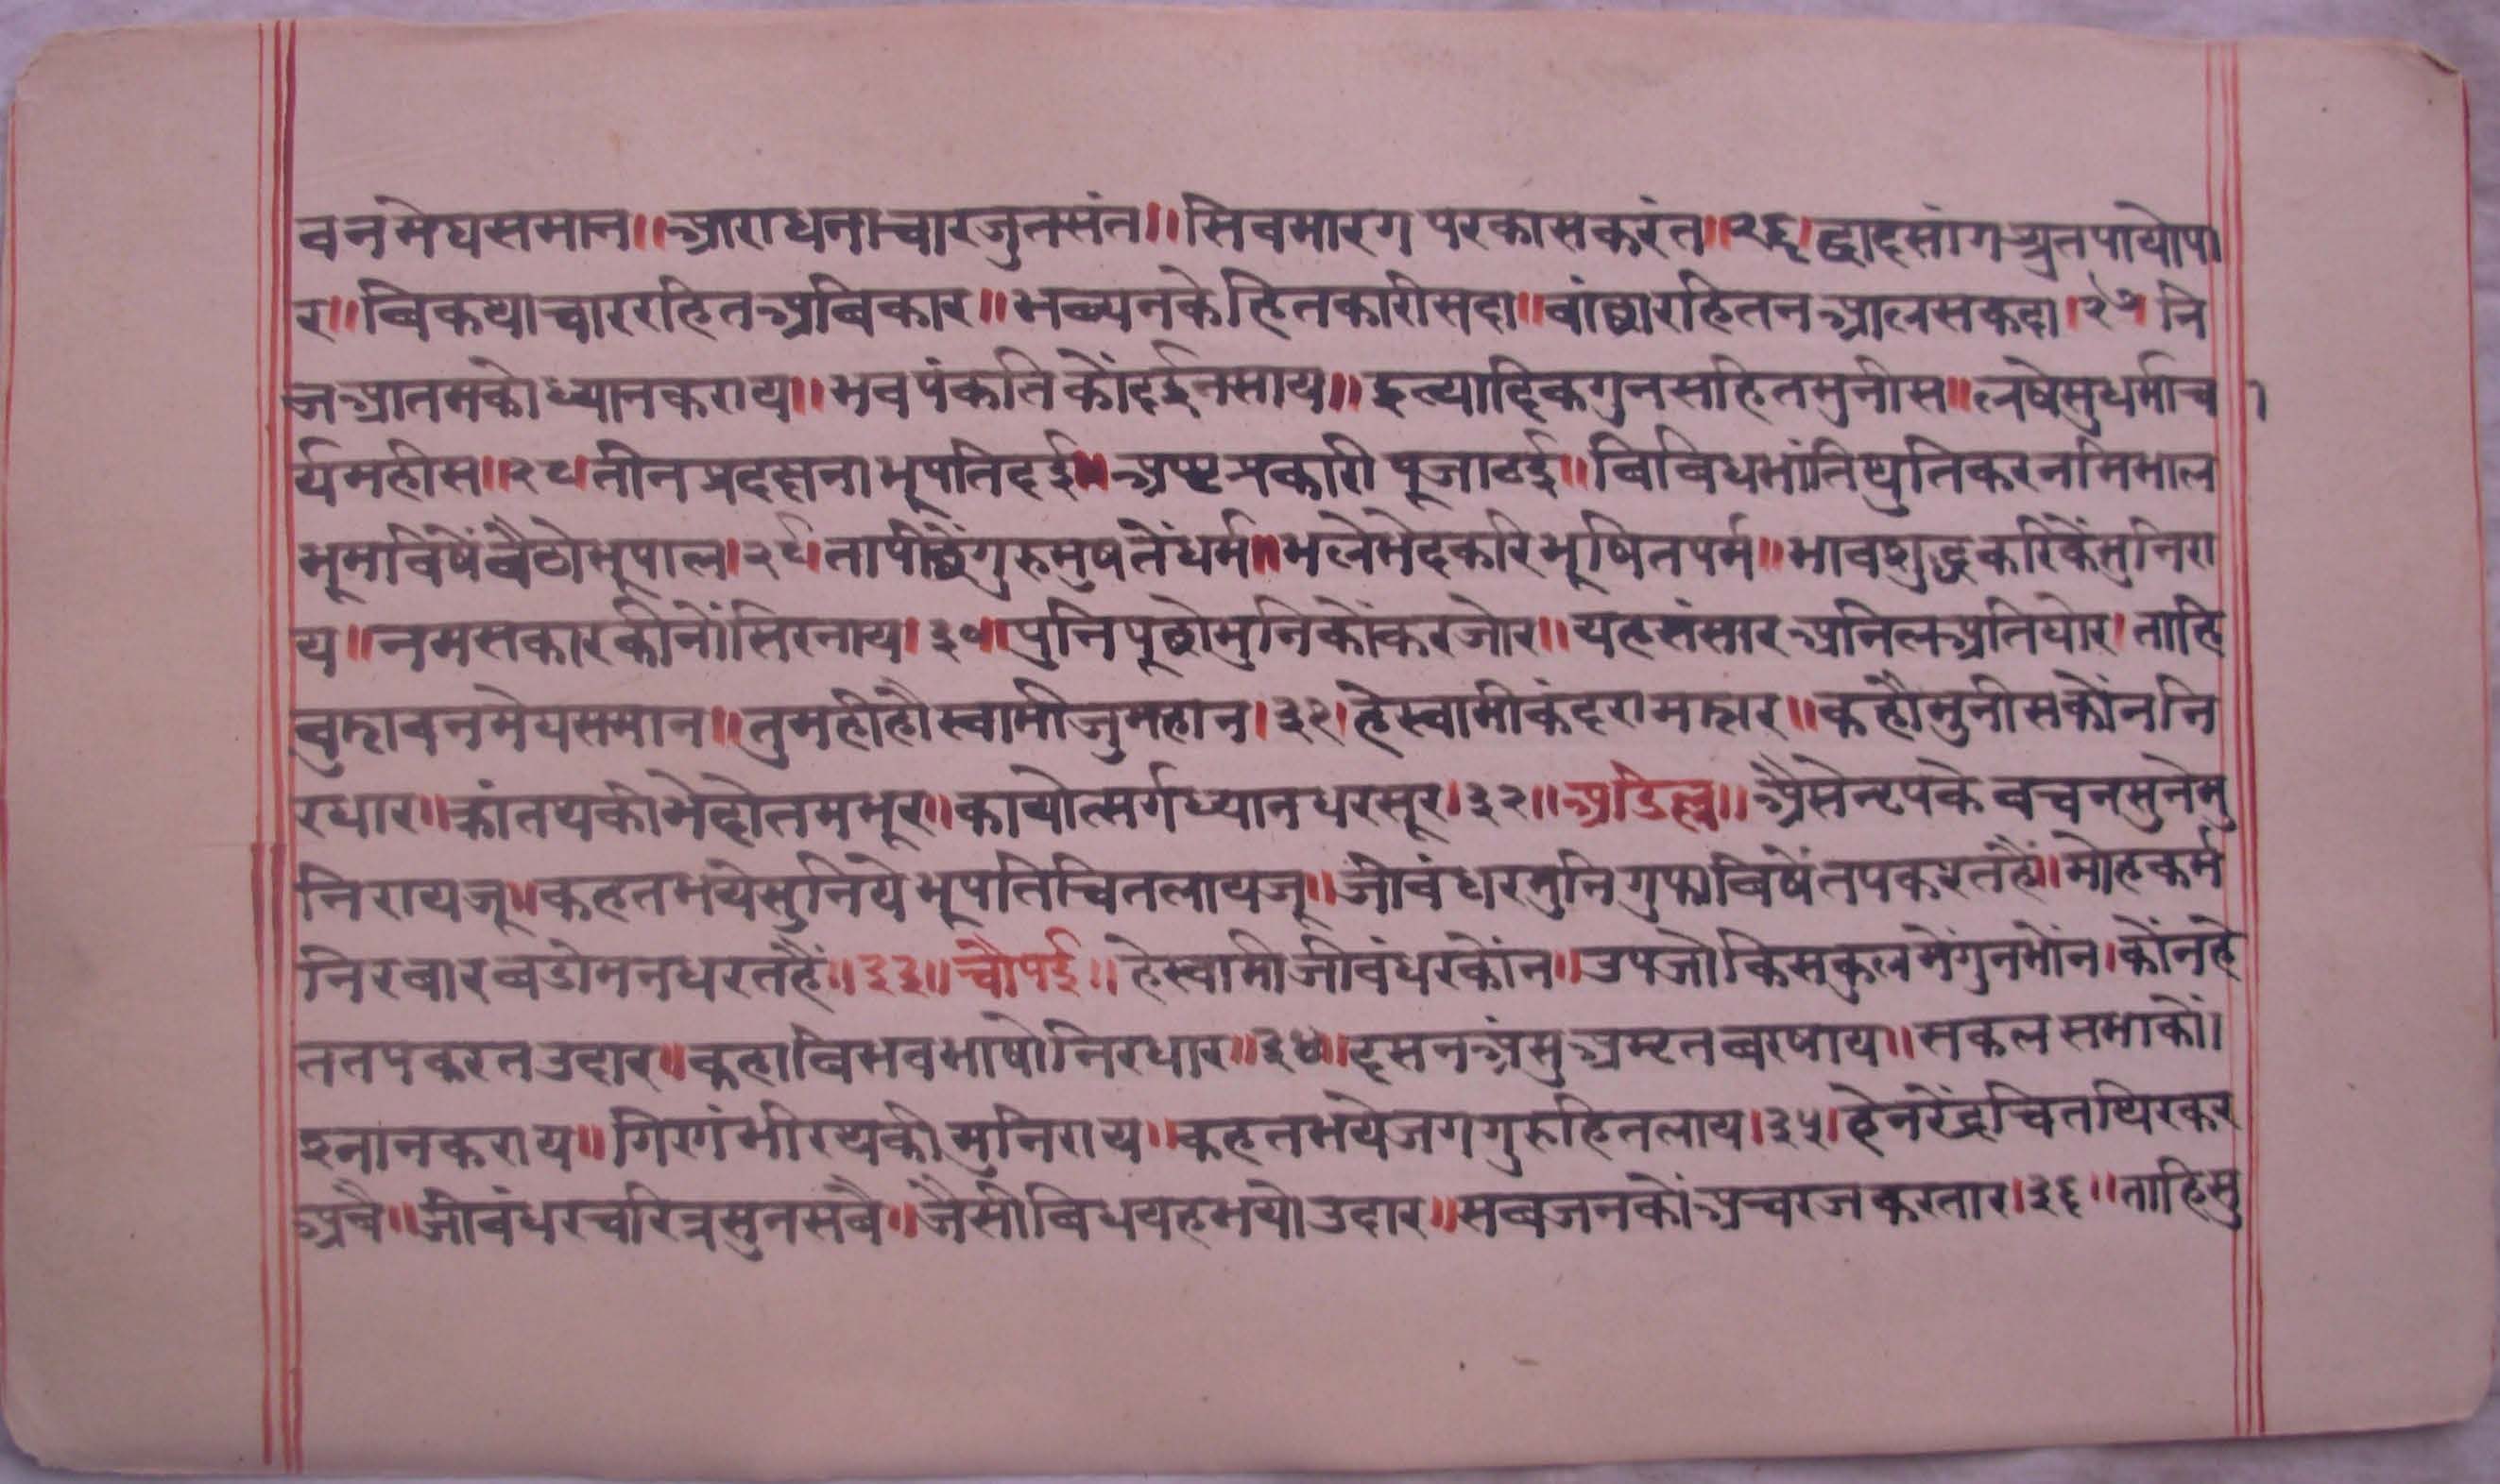 वनमेघसमान॥आराधनाचारजुतसंत॥सिवमारग परकासकरंत॥२६॥द्वादसांगश्रुतपायोपा
र॥बिकथाचाररहितअबिकार॥भव्यनकेहितकारीसदा॥वांछारहितनआलसकदा।२७।नि
जआतमकोध्यानकराय॥भवपंकतिकोंदईनसाय॥इत्यादिकगुनसहितमुनीस॥लषेसुधर्माच ा
र्यमहीस॥२८।तीनप्रदक्षनाभूपतिदई॥अष्टप्रकारी पूजाठई॥बिबिधभांतिथुतिकरनमिभाल
भूमविषेंबैठोभूपाल।२९।तापीछेंगुरुमुषतेंधर्म॥भलेभेदकरिभूषितपर्म॥भावशुद्धकरिकेंमुनिरा
य॥नमसकारकीनोंसिरनाय।३०॥पुनिपूछोमुनिकोंकरजोर॥यहसंसारअनिलअतिघोर।ताहि
बुझावनमेघसमान॥तुमहीहौस्वामीजुमहान।३१।हेस्वामीकंदरामझार॥कहौमुनीसकोंननि
रधार॥कांतयकीभेदोतमभूर॥कायोत्सर्गध्यानधरसूर।३२॥अडिल्ल॥अैसेनृपके बचनसुनेमु
निरायजू॥कहतभयेसुनियेभूपतिचितलायजू॥जीवंधरमुनिगुफाबिषेंतपकरतहैं॥मोहकर्म
निरबारबडोमनधरतहैं॥३३॥चौपई॥हेस्वामीजीवंधरकोंन॥उपजोकिसकुलमेंगुनभोंन।कोंनहे
ततपकरतउदार॥कहाबिभवभाषोनिरधार॥३४॥दसनअंसुअमृतबरषाय॥सकलसभाकों।
स्नानकराय॥गिरगंभीरथकीमुनिराय॥कहतभयेजगगुरुहितलाय।३५।हेनरेंद्रचितथिरकर
अबै॥जीवंधरचरित्रसुनसबै॥जैसीबिधयहभयोउदार॥सबजनकोंअचरजकरतार।३६॥ताहिसु